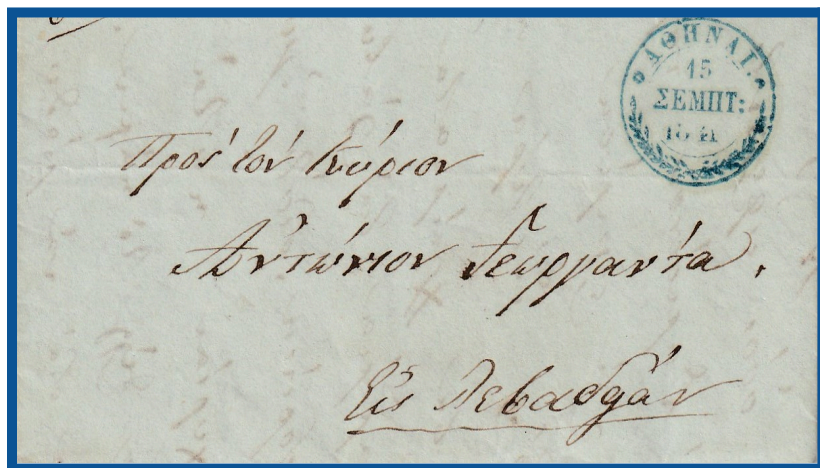 ΑΘΗΝΑΙ.
15
ΣΕΜΠΤ:
1841
Πρὸς τὸν Κύριον
Ἀντώνιον Γεωργαντᾶ.
Εἰς Λεβαδίαν